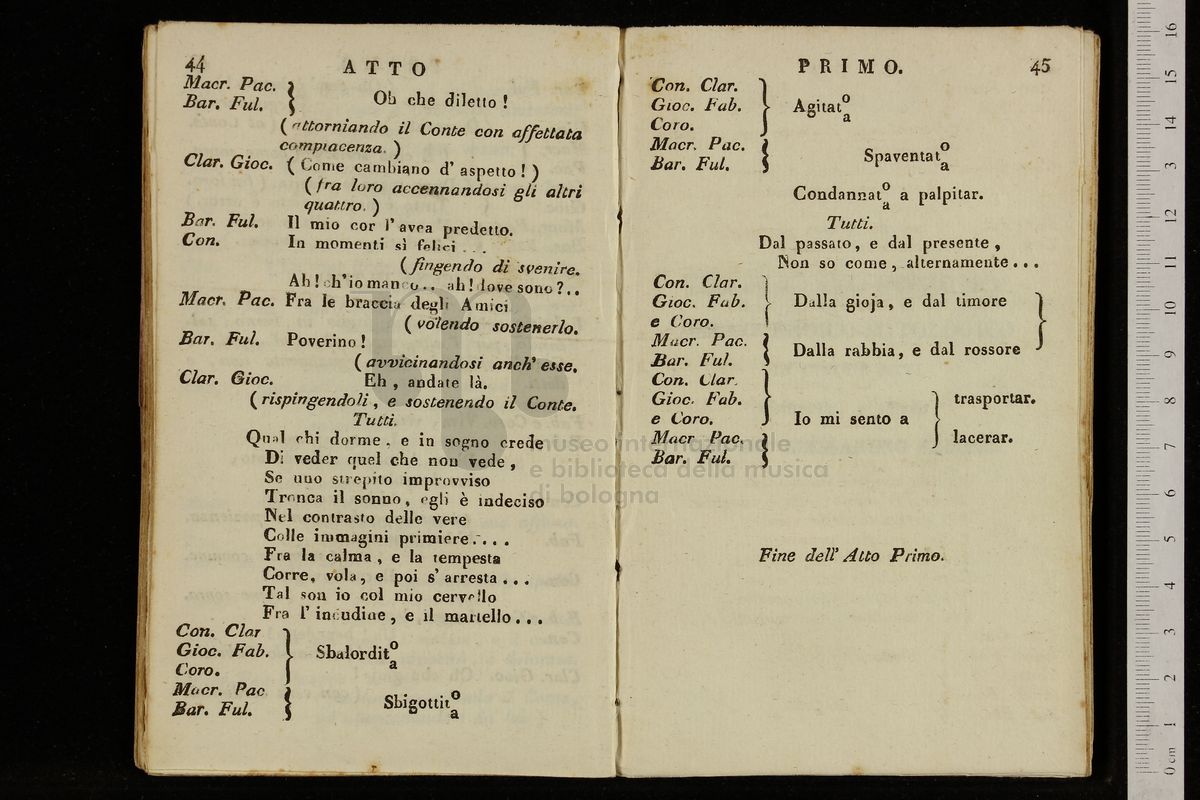 44 ATTO
Macr. Pac.
Bar. Ful. } Oh che diletto !
( attorniando il Conte con affettata
compiacenza. )
Clar. Gioc. ( Come cambiano d' aspetto ! )
( fra loro accennandosi gli altri
quattro. )
Bar. Ful. Il mio cor l' avea predetto.
Con. In momenti sì felici . . .
( fingendo di svenire.
Ah ! ch' io manco . . ah ! dove sono ? . .
Macr. Pac. Fra le braccia degli Amici
( volendo sostenerlo.
Bar. Ful. Poverino !
( avvicinandosi anch' esse.
Clar. Gioc. Eh , andate là.
( rispingendoli , e sostenendo il Conte.
Tutti.
Qual chi dorme , e in sogno crede
Di veder quel che non vede ,
Se uno strepito improvviso
Tronca il sonno , egli è indeciso
Nel contrasto delle vere
Colle immagini primiere . . . .
Fra la calma , e la tempesta
Corre, vola , e poi s' arresta . . .
Tal son io col mio cervello
Fra l' incudine , e il martello . . .
Con. Clar
Gioc. Fab. } Sbalordit o/a
Coro.
Macr. Pac
Bar. Ful. } Sbigottit o/a
PRIMO. 45
Con. Clar.
Gioc. Fab. } Agitat o/a
Coro.
Macr. Pac.
Bar. Ful. } Spaventat o/a
Condannat o/a a palpitar.
Tutti.
Dal passato , e dal presente ,
Non so come , alternamente . . .
Con. Clar.
Gioc. Fab. } Dalla gioja , e dal timore }
e Coro.
Macr. Pac.
Bar. Ful. } Dalla rabbia , e dal rossore
Con. Clar.
Gioc. Fab. } trasportar.
e Coro. } Io mi sento a
Macr Pac. } lacerar.
Bar. Ful.
Fine dell' Atto Primo.
museo internazionale
e biblioteca della musica
di bologna
0 cm 1 2 3 4 5 6 7 8 9 10 11 12 13 14 15 16